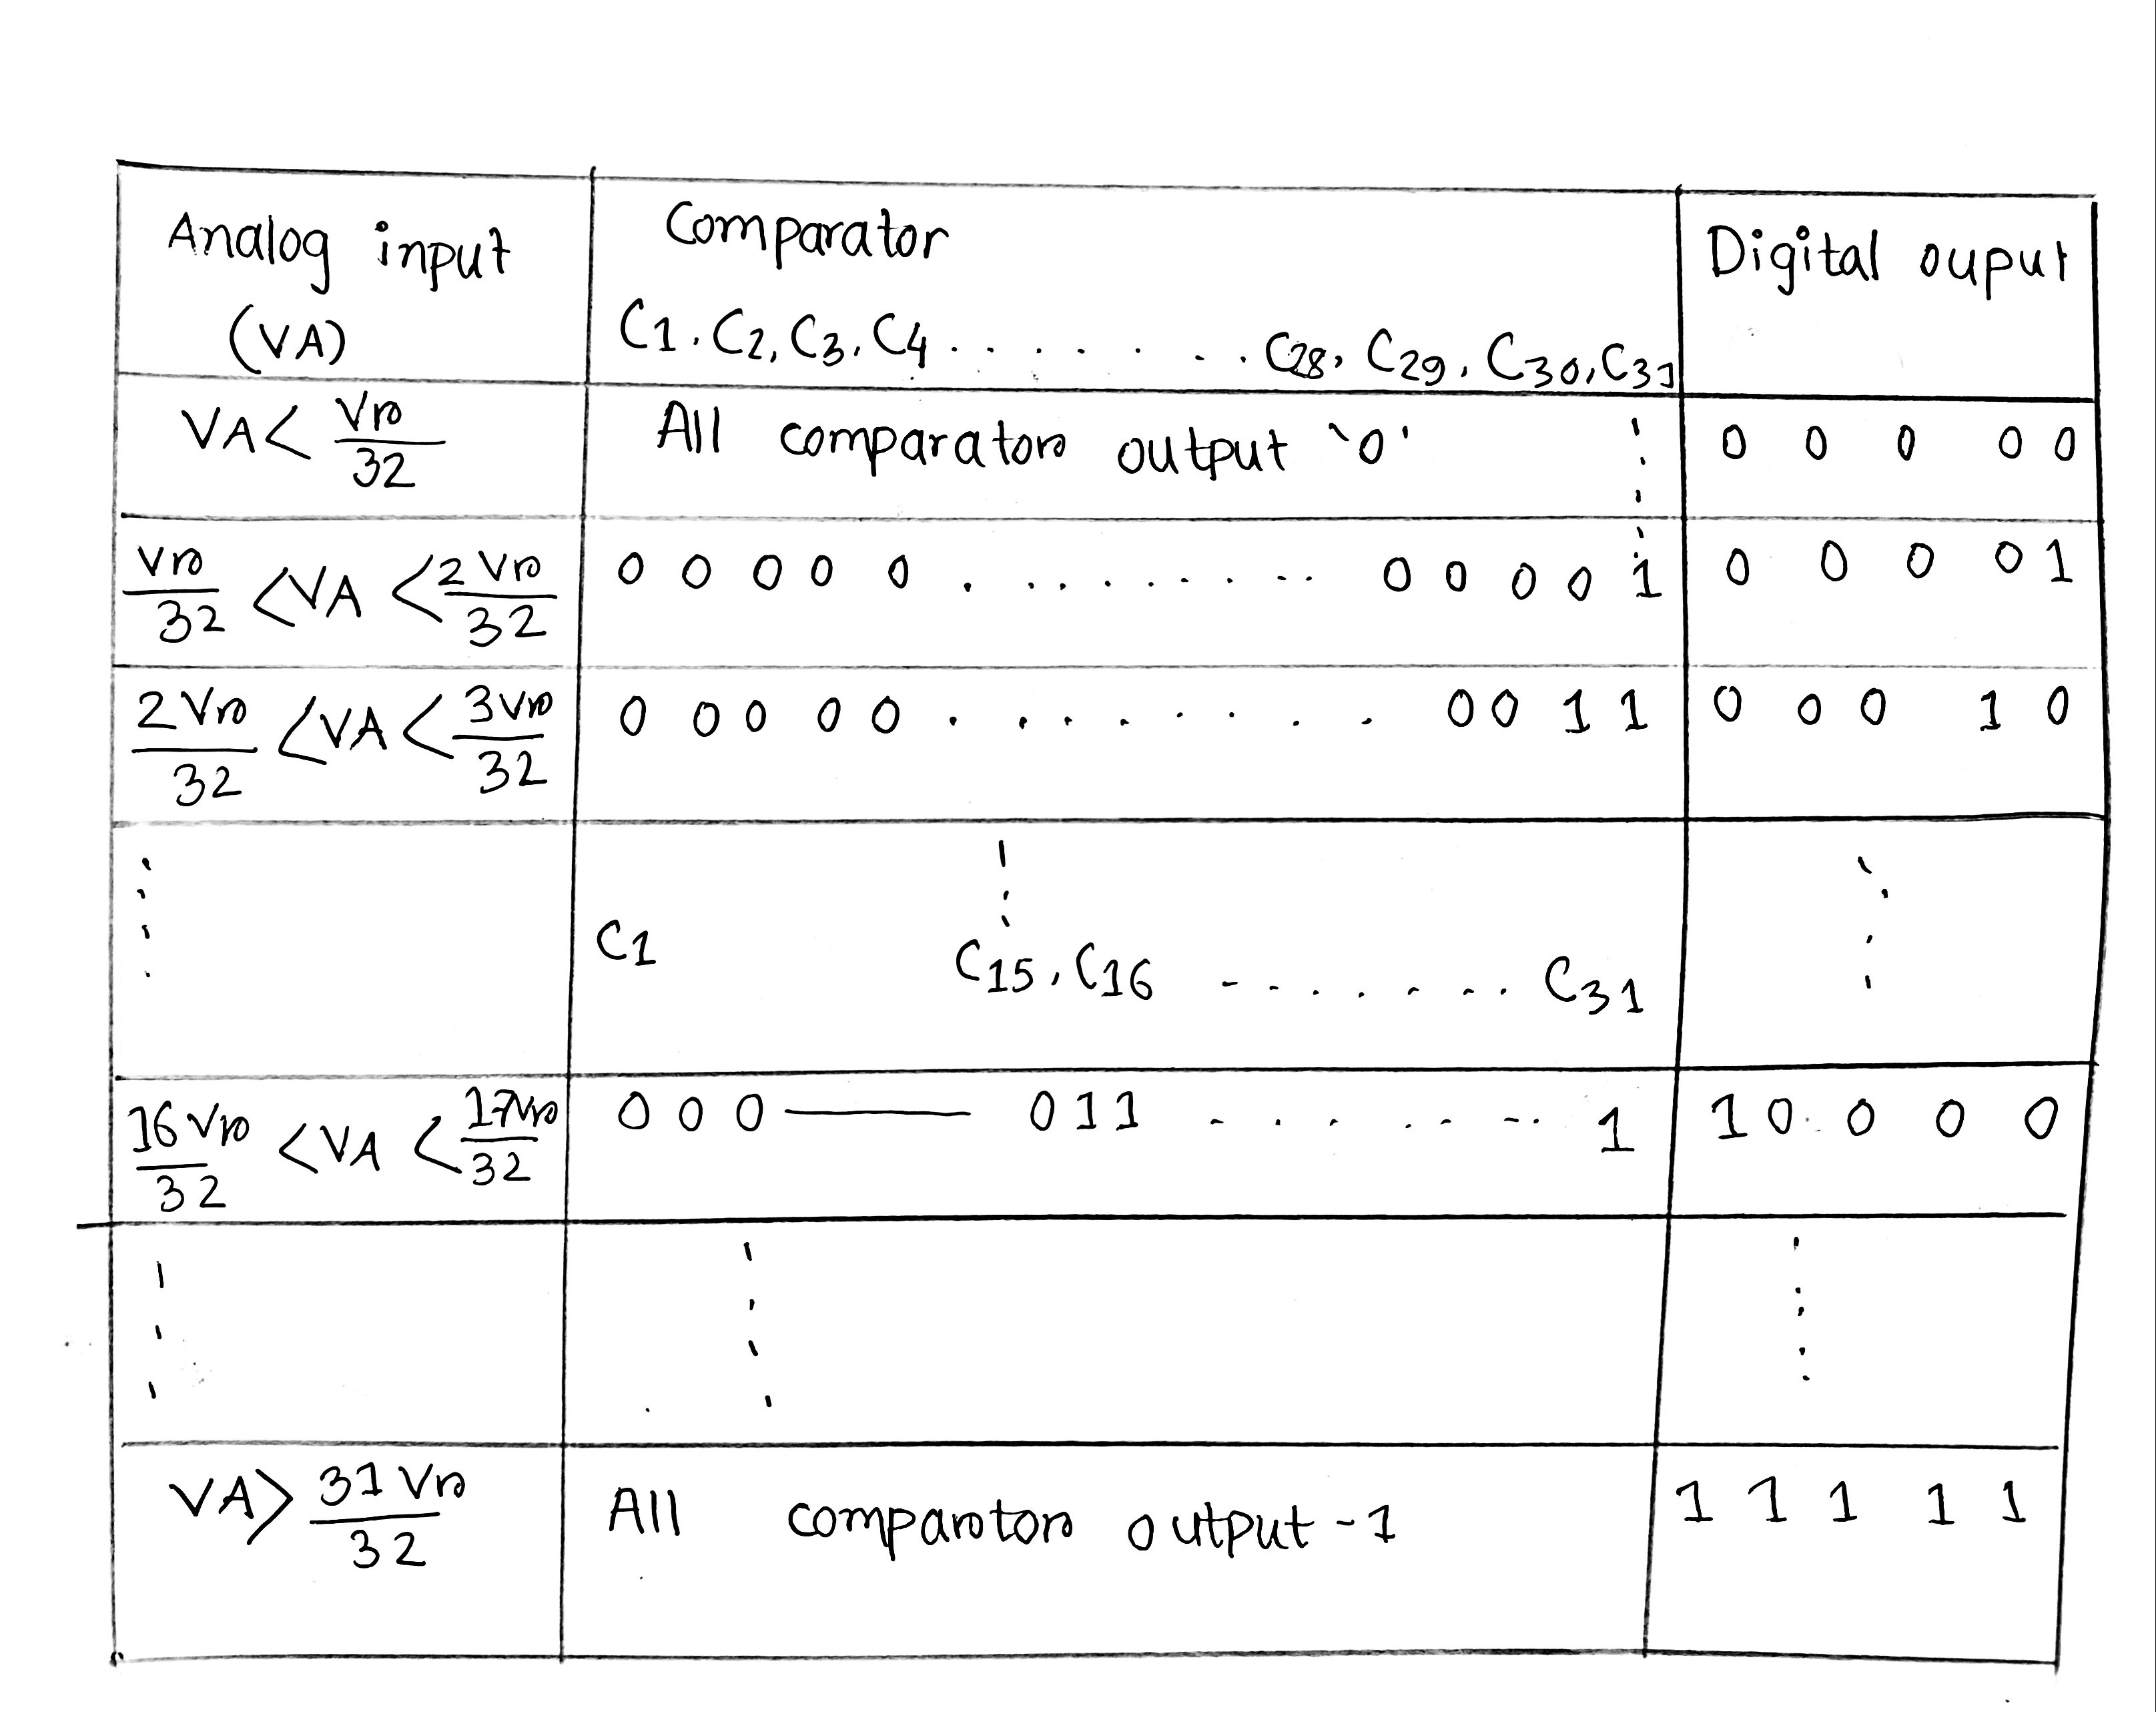 Analog input
(VA)
Comparator
C1, C2, C3, C4 . . . . . . . C28, C29, C30, C31
Digital ouput
VA < Vr/32
All comparators output '0'
0 0 0 0 0
Vr/32 < VA < 2Vr/32
0 0 0 0 0 . . . . . . . . . 0 0 0 0 1
0 0 0 0 1
2Vr/32 < VA < 3Vr/32
0 0 0 0 0 . . . . . . . . . 0 0 1 1
0 0 0 1 0
C1 C15, C16 - . . . . . . . C31
16Vr/32 < VA < 17Vr/32
0 0 0 —— 0 1 1 . . . . . . . 1
1 0 0 0 0
VA > 31Vr/32
All comparators output - 1
1 1 1 1 1